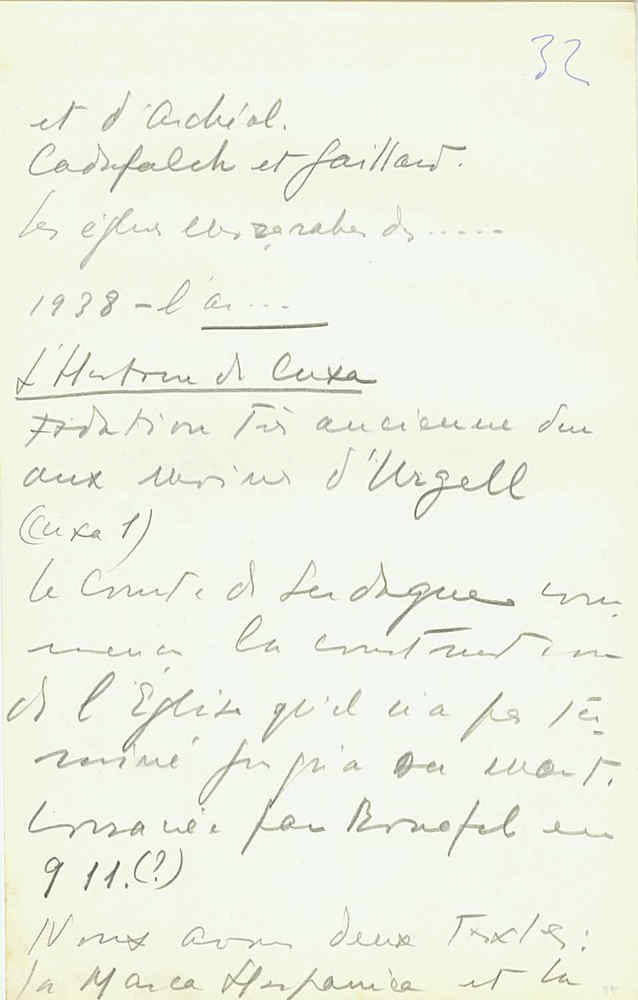 32
et d'Archéol.
Cadafalch et Gaillard.
Les églises mozarabes de .....
1938 – l'a...
L'Histoire de Cuxa
Fondation très ancienne due
aux moines d'Urgell
(Cuxa 1)
Le Comte de Cerdagne com
mença la construction
de l'Église qu'il n'a pas ter-
miné jusqu'a sa mort.
par en
911.(?)
Nous avons deux textes:
la Marca Hispanica et la